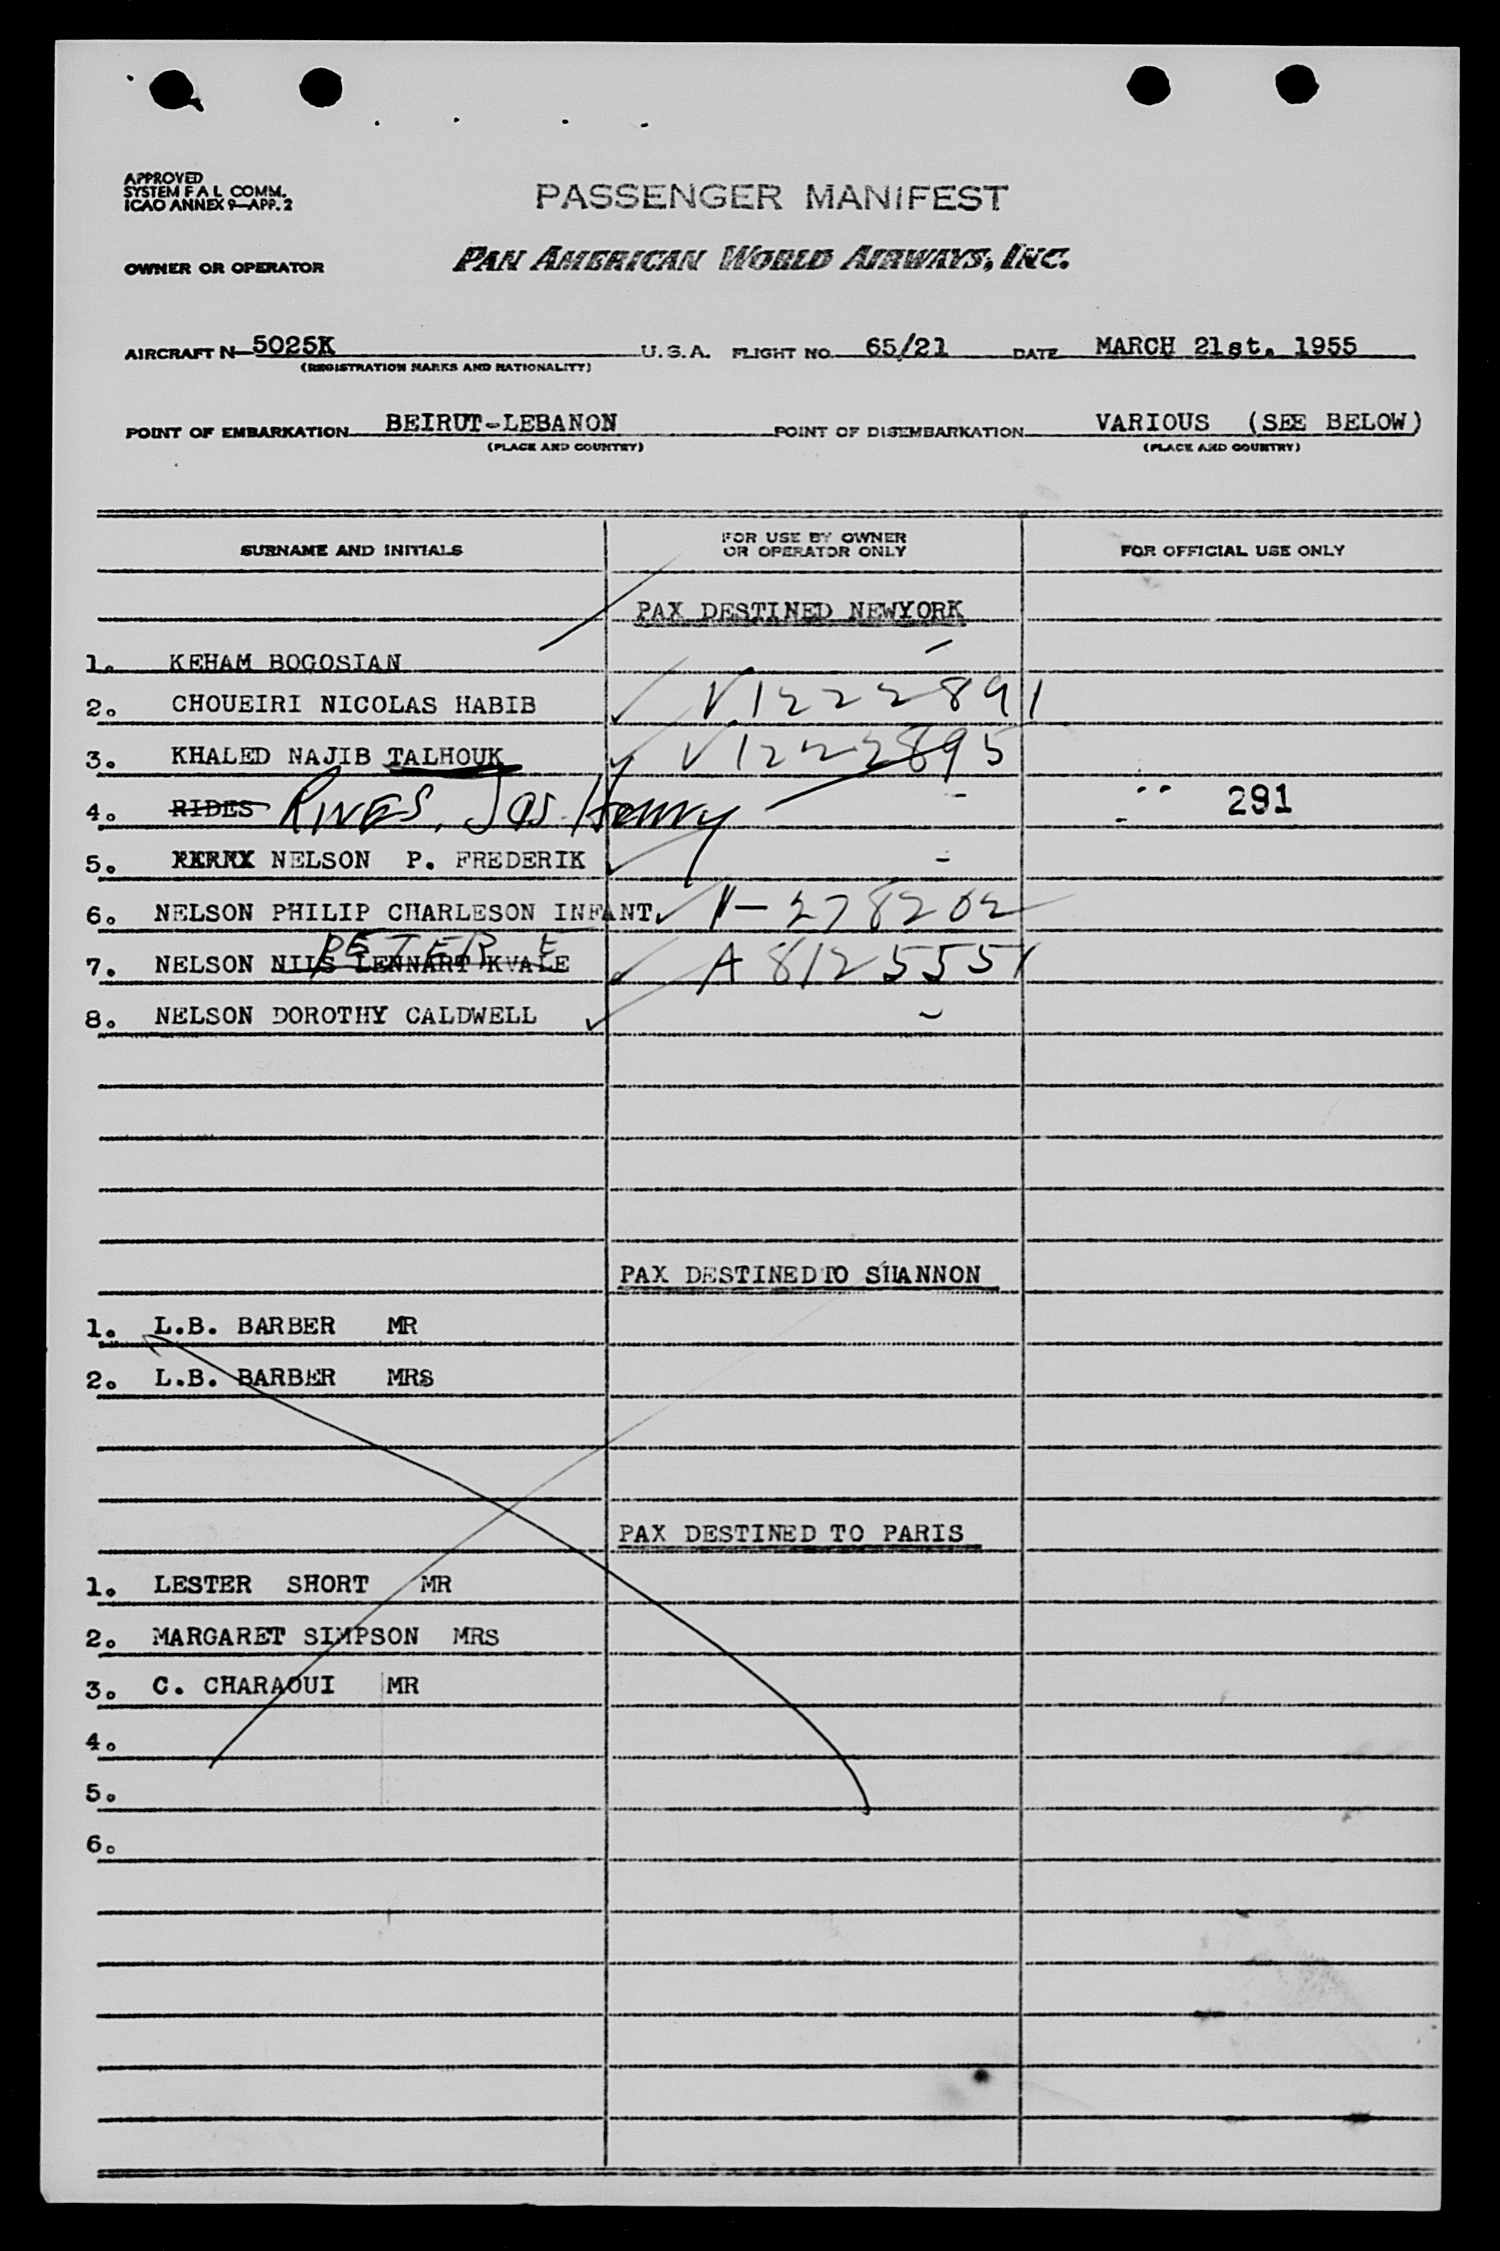 APPROVED
SYSTEM F A L COMM.
ICAO ANNEX 9—APP. 2
PASSENGER MANIFEST
OWNER OR OPERATOR PAN AMERICAN WORLD AIRWAYS, INC.
AIRCRAFT N 5025K U.S.A. FLIGHT NO. 65/21 DATE MARCH 21st. 1955
(REGISTRATION MARKS AND NATIONALITY)
POINT OF EMBARKATION BEIRUT-LEBANON POINT OF DISEMBARKATION VARIOUS (SEE BELOW)
(PLACE AND COUNTRY) (PLACE AND COUNTRY)
SURNAME AND INITIALS FOR USE BY OWNER OR OPERATOR ONLY FOR OFFICIAL USE ONLY
PAX DESTINED NEWYORK
1. KEHAM BOGOSIAN –
2. CHOUEIRI NICOLAS HABIB ✓ V1222891
3. KHALED NAJIB TALHOUK ✓ V1222895
4. RIDES RIVES, Jas. Henry – 291
5. NELSON P. FREDERIK ✓ –
6. NELSON PHILIP CHARLESON INFANT. ✓ V-278202
7. NELSON NILS LENNART KVALE PETER E ✓ A8125551
8. NELSON DOROTHY CALDWELL ✓ –
PAX DESTINED TO SHANNON
1. L.B. BARBER MR
2. L.B. BARBER MRS
PAX DESTINED TO PARIS
1. LESTER SHORT MR
2. MARGARET SIMPSON MRS
3. C. CHARAOUI MR
4.
5.
6.